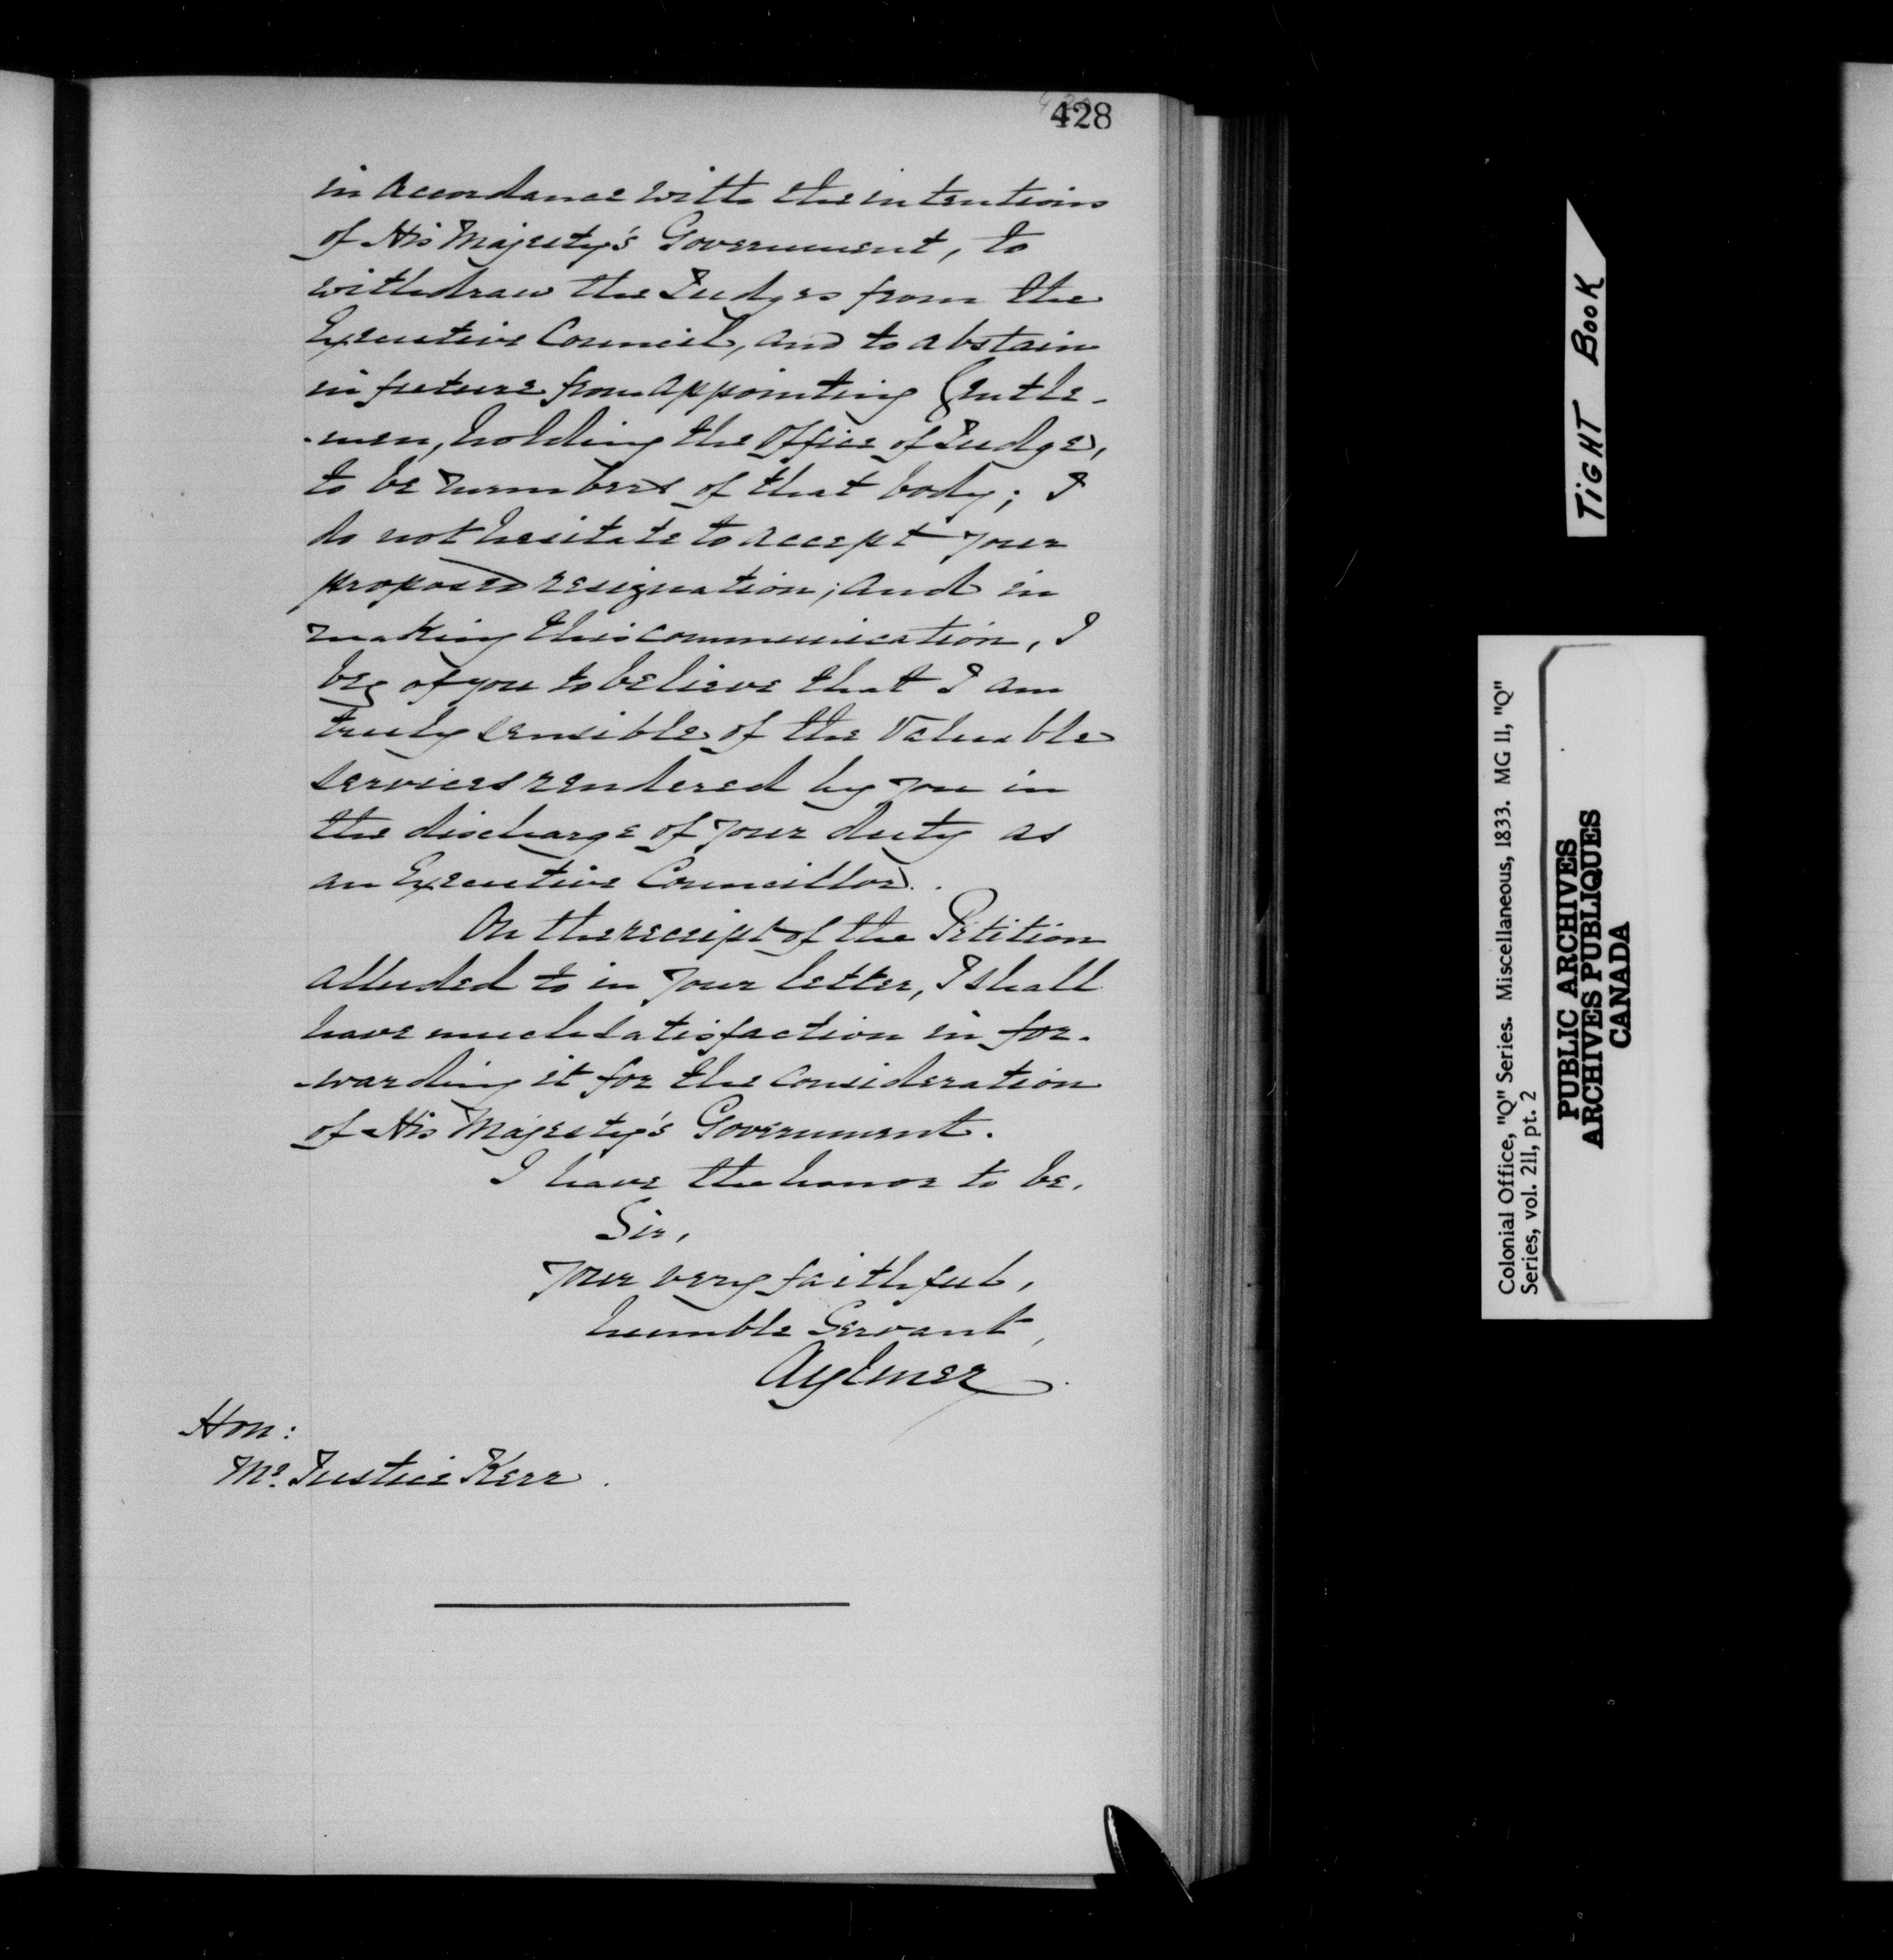 428
in accordance with the intentions
of His Majesty's Government, to
withdraw the Judges from the
Executive Council, and to abstain
in future from appointing Gentle-
-men, holding the Office of Judge,
to be members of that body; I
do not hesitate to accept your
proposed resignation; and in
making this communication, I
beg of you to believe that I am
truly sensible of the valuable
services rendered by you in
the discharge of your duty as
an Executive Councillor.
On the receipt of the Petition
alluded to in your letter, I shall
have much satisfaction in for-
-warding it for the consideration
of His Majesty's Government.
I have the honor to be,
Sir,
Your very faithful,
humble Servant,
Aylmer
Hon:
Mr. Justice Kerr.
TIGHT BOOK
Colonial Office, "Q" Series. Miscellaneous, 1833. MG 11, "Q"
Series, vol. 211, pt. 2
PUBLIC ARCHIVES
ARCHIVES PUBLIQUES
CANADA